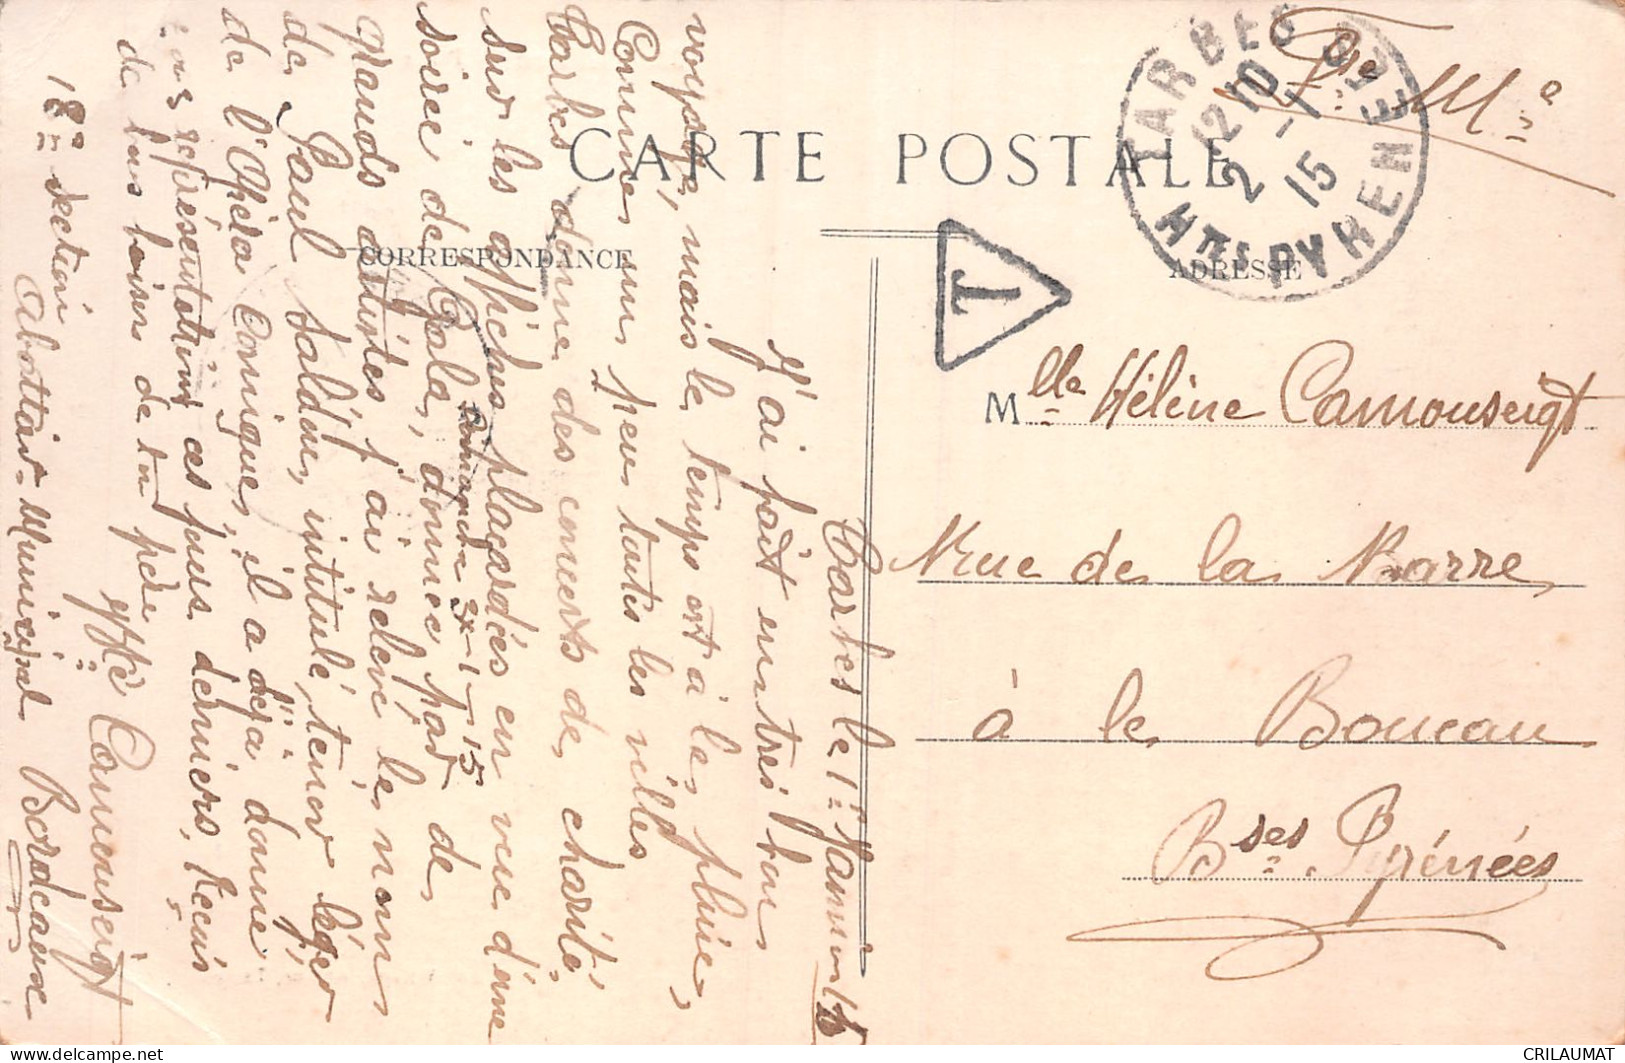 CARTE POSTALE
CORRESPONDANCE
ADRESSE
TARBES
12 10
2 -1
15
Htes PYRENEES
T
Fse Me
Mlle Hélène Camouseigt
Rue de la Barre
à le Boucau
Bses Pyrénées
Tarbes le 1er Janvier 15
J'ai fait un très bon
voyage, mais le temps est à la pluie,
Comme un peu toutes les villes
Tarbes donne des concerts de charité,
sur les affiches placardées en vue d'une
soirée de Gala, donnée par de
dimanche 3-1-15
grands artistes j'ai relevé le nom
de Paul Saldou, intitulé, ténor léger
de l'Opéra Comique, il a déjà donné
représentations ces jours derniers. Ecris
de tes loisirs de ton père
Camouseigt
18e section
Abattoir Municipal Bordeaux
CRILAUMAT